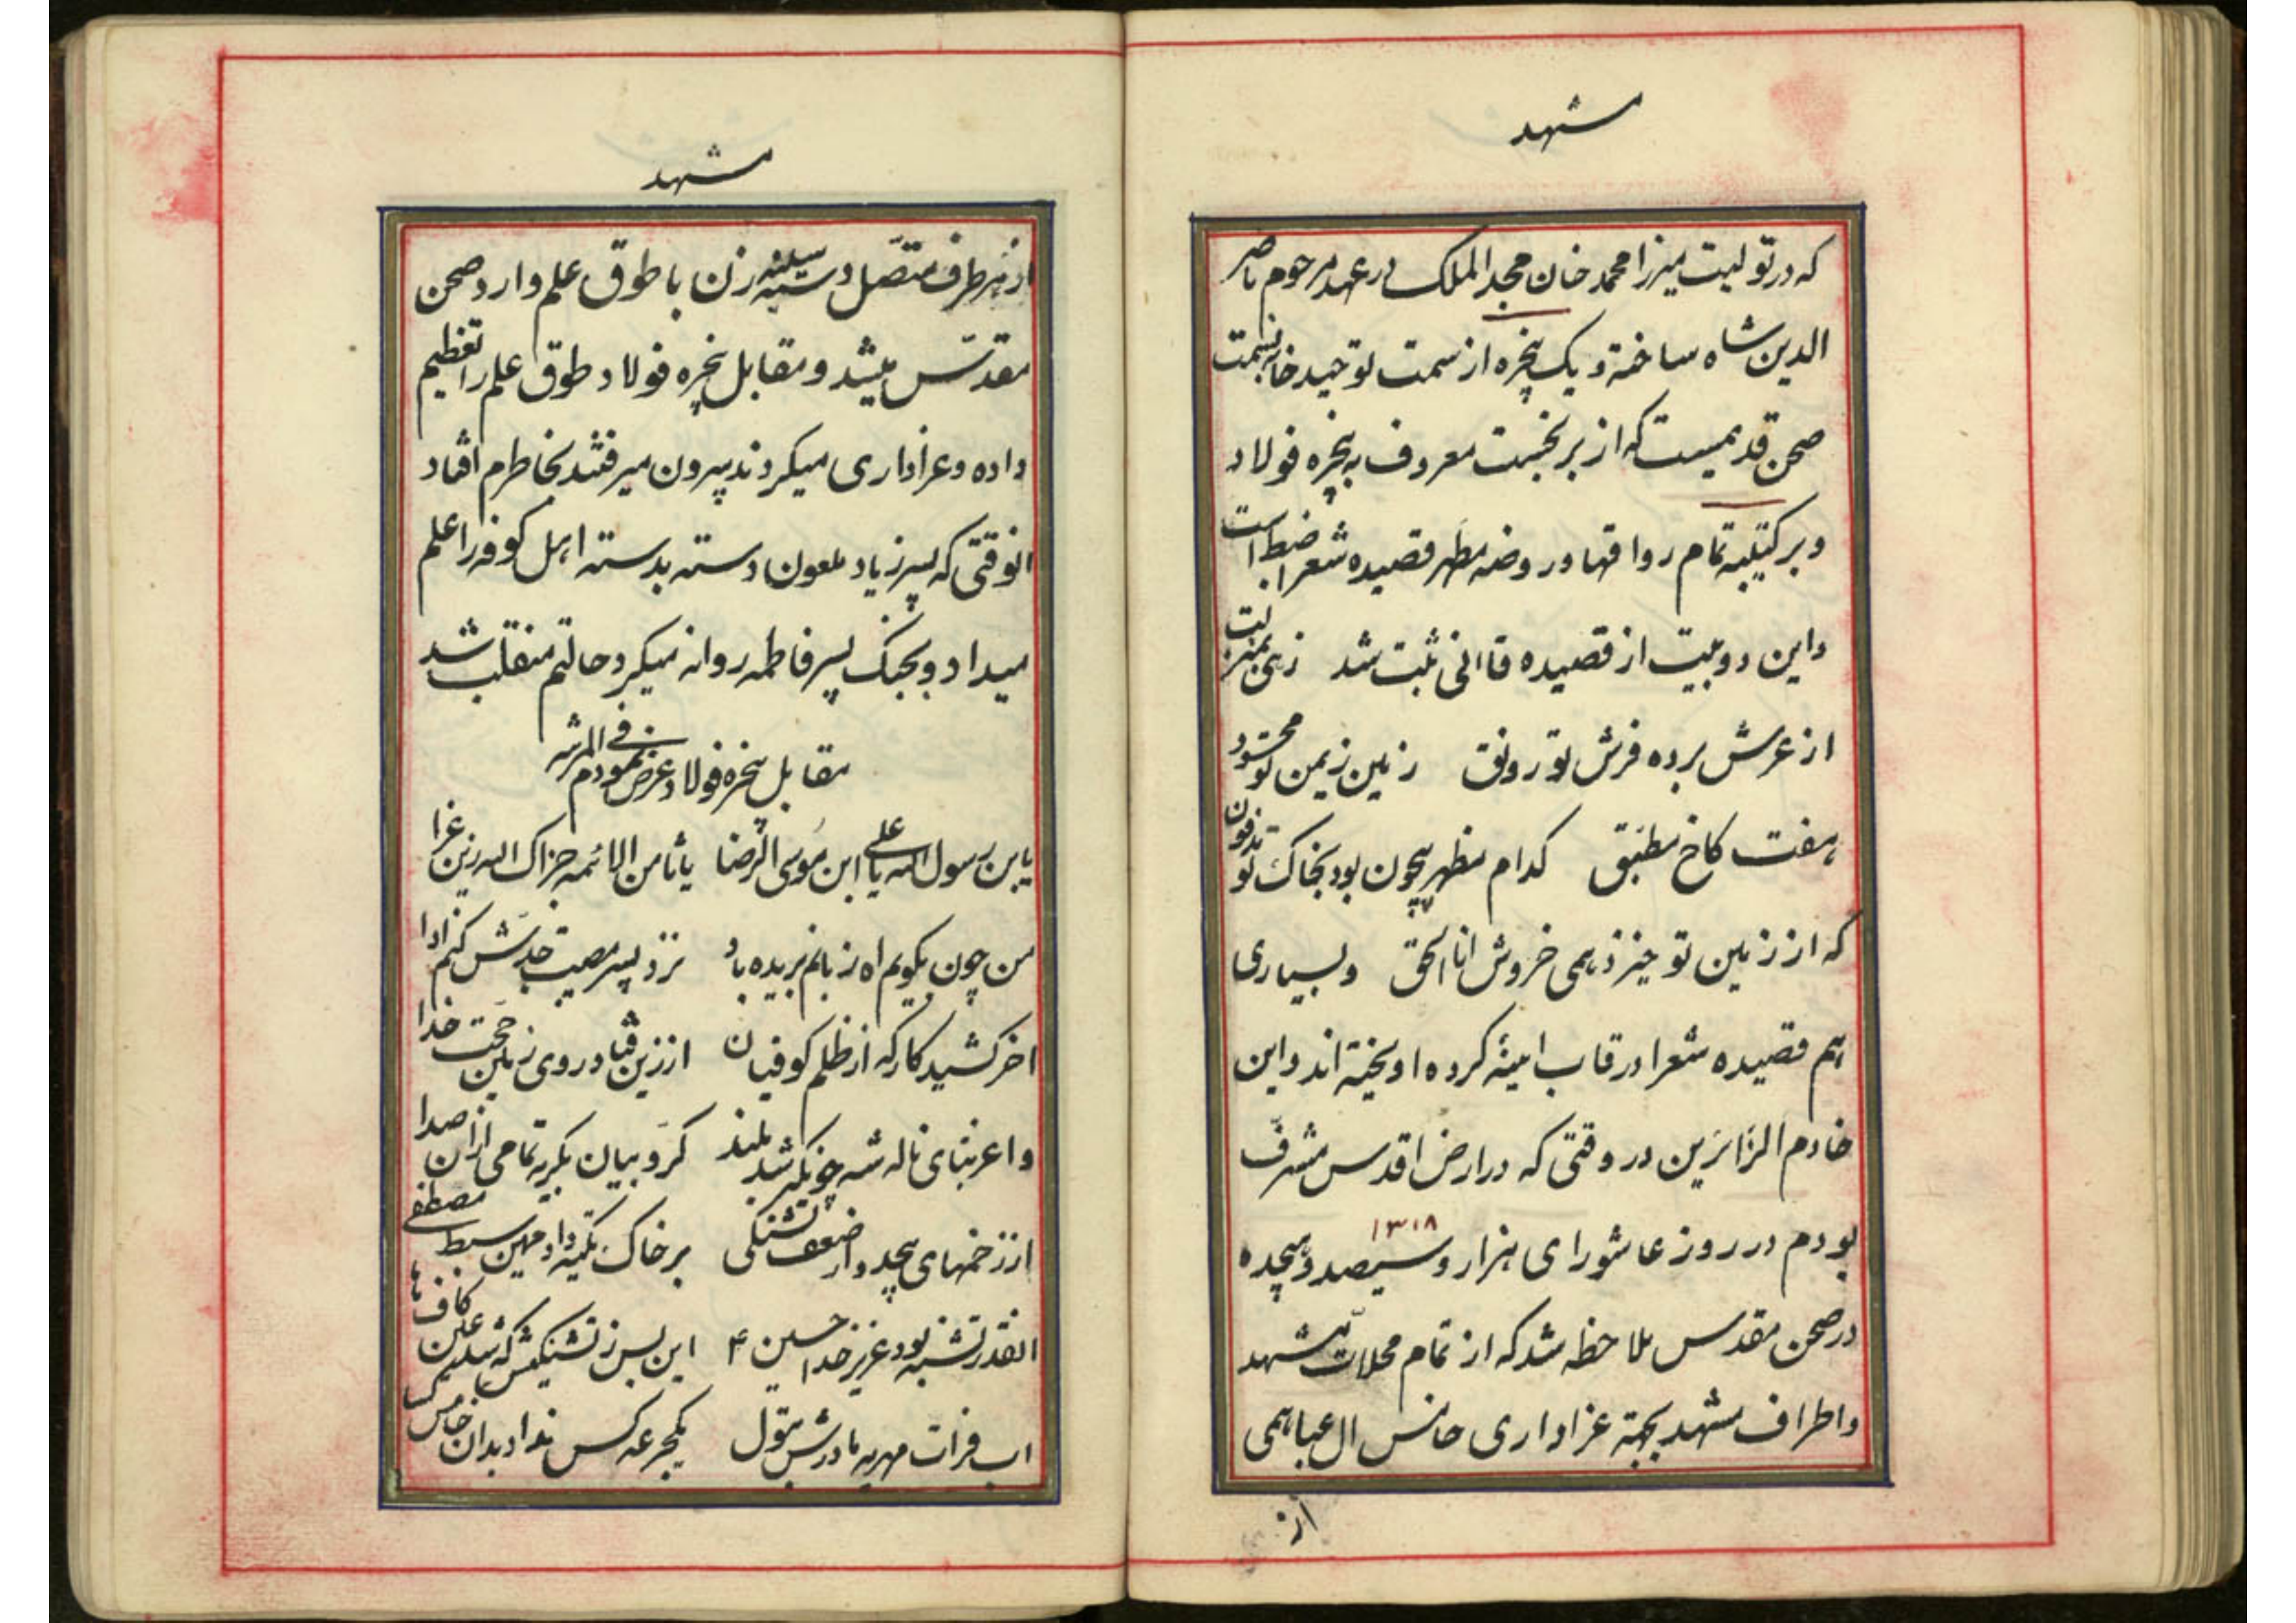 مشهد
که در تولیت میرزا محمد خان مجد الملک در عهد مرحوم ناصر
الدین شاه ساخته و یک پنجره از سمت توحید خانه بسمت
صحن قدیمیست که از برنجست معروف به پنجره فولاد
و بر کتیبه تمام رواقها و روضه مطهر قصیده شعرا ضبط است
و این دو بیت از قصیده قاانی ثبت شد زهی بمنزلت
از عرش برده فرش تو رونق زمین زیمن تو محسود
هفت کاخ مطبق کدام مظهر بیچون بود بخاک تو مدفون
که از زمین تو خیزد همی خروش انا الحق و بسیاری
هم قصیده شعرا در قاب اینۀ کرده اویخته اند و این
خادم الزائرین در وقتی که در ارض اقدس مشرف
۱۳۱۸
بودم در روز عاشورای هزار و سیصد و هیجده
در صحن مقدس ملاحظه شد که از تمام محلات مشهد
و اطراف مشهد بجهته عزاداری خامس ال عبا همی
از
مشهد
از هر طرف متصل دسته سینه زن با طوق علم وارد صحن
مقدس میشد و مقابل پنجره فولاد طوق علم را تعظیم
داده و عزاداری میکردند بیرون میرفتند بخاطرم افتاد
انوقتی که پسر زیاد ملعون دسته بدسته اهل کوفه را علم
میداد و بجنگ پسر فاطمه روانه میکرد حالتم منقلب شد
مقابل پنجره فولاد عرض نمودم فی المرثیه
یابن رسول الله یا علی ابن موسی الرضا یا ثامن الائمه جزاک الله زین عزا
من چون بگویم اه زبانم بریده باد نزد پسر مصیبت جدش کنم ادا
اخر کشید کار که از ظلم کوفیان از زین فتاد روی زمین حجت خدا
واغربتای ناله شه چونکه شد بلند کروبیان بگریه تمامی ازان صدا
از زخمهای بیحد و از ضعف تشنگی بر خاک تکیه داد مهین سبط مصطفی
انقدر تشنه بود عزیز خدا حسین ۴ این بس ز تشنگیش که شد عین کاف ها
اب فرات مهریه مادرش بتول یکجرعه کس نداد بدان خامس